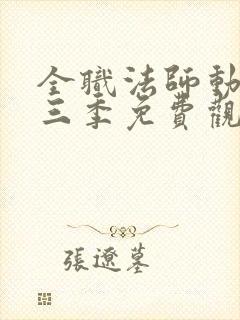 全職法師動
三季免費觀
張遼墓